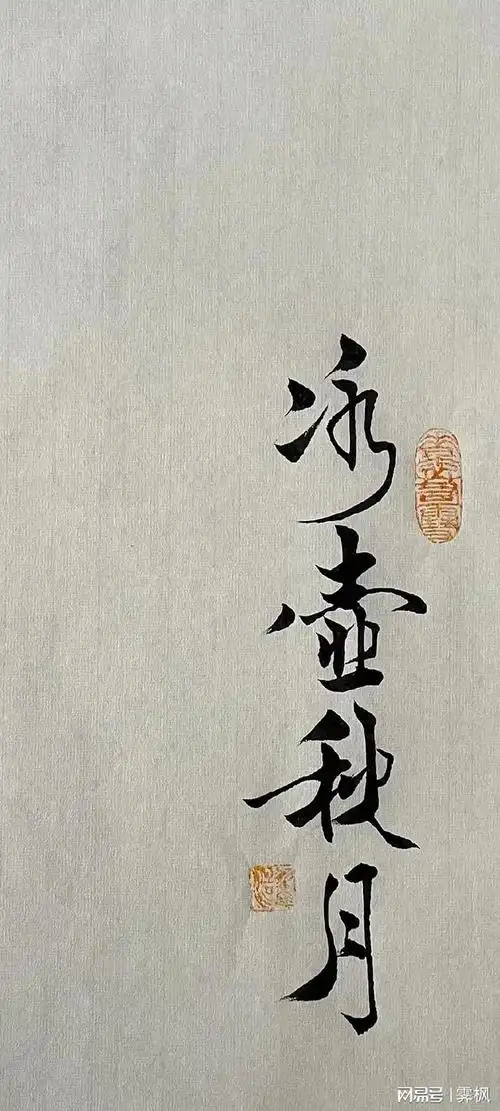 冰壶秋月
网易号 | 霁枫